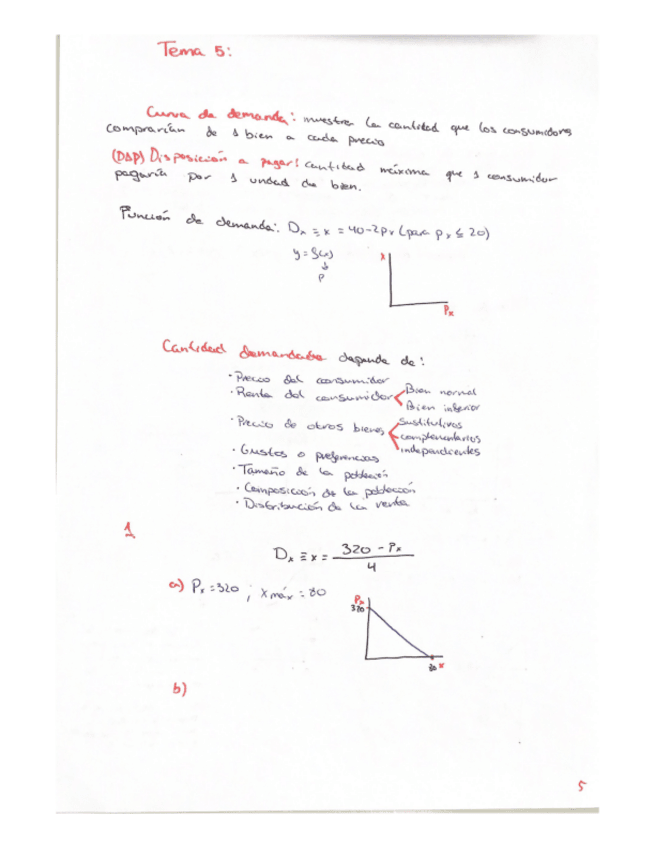 Tema 5:
Curva de demanda: muestra la cantidad que los consumidores
comprarían de 1 bien a cada precio
(DAP) Disposición a pagar: cantidad máxima que 1 consumidor
pagaría por 1 unidad de bien.
Función de demanda: Dx ≡ x = 40-2px (para px ≤ 20)
y = f(x)
↓
p
x
Px
Cantidad demandada depende de:
· Precio del consumidor
· Renta del consumidor < Bien normal
Bien inferior
· Precio de otros bienes < Sustitutivos
complementarios
independientes
· Gustos o preferencias
· Tamaño de la población
· Composición de la población
· Distribución de la renta
1
Dx ≡ x = 320 - Px
4
a) Px = 320 ; x máx = 80
Px
320
80 x
b)
5